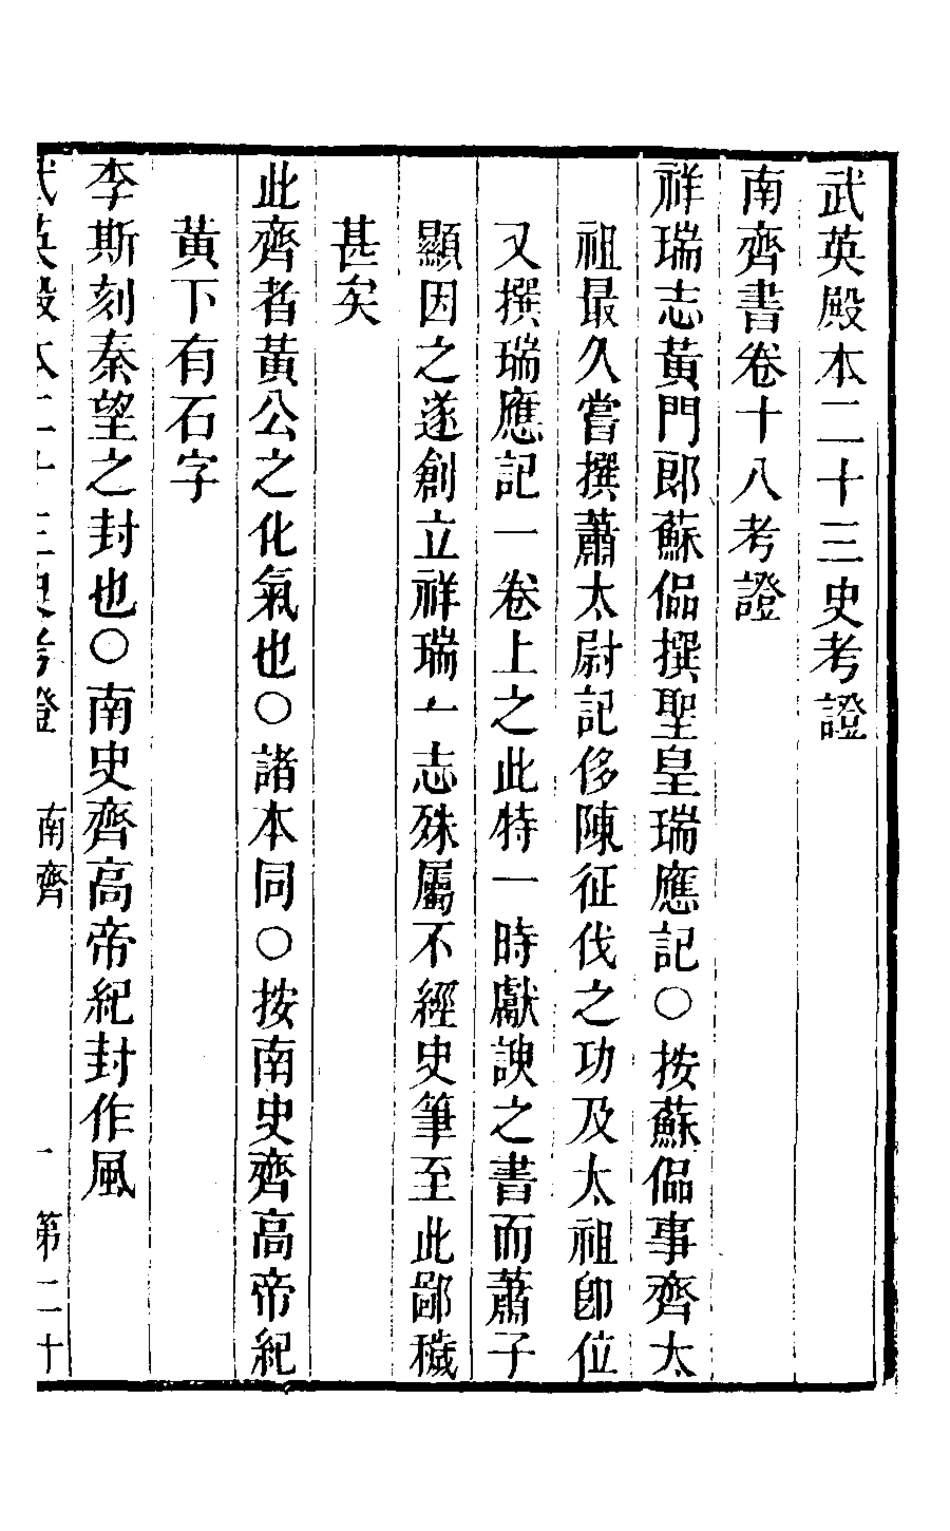 武英殿本二十三史考證
南齊書卷十八考證
祥瑞志黃門郎蘇偘撰聖皇瑞應記○按蘇偘事齊太
祖最久嘗撰蕭太尉記侈陳征伐之功及太祖卽位
又撰瑞應記一卷上之此特一時獻諛之書而蕭子
顯因之遂創立祥瑞一志殊屬不經史筆至此鄙穢
甚矣
此齊者黃公之化氣也○諸本同○按南史齊高帝紀
黃下有石字
李斯刻秦望之封也○南史齊高帝紀封作風
武英殿本二十三史考證 南齊 一 第二十